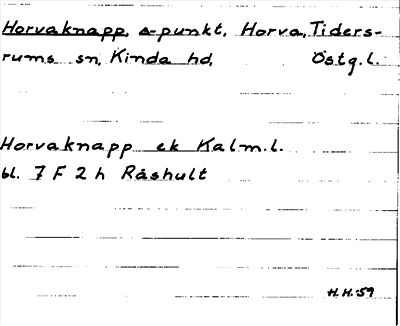 Horvaknapp, s-punkt, Horva, Tiders-
rums sn, Kinda hd, Östg.l.
Horvaknapp ek Kalm.l.
bl. 7 F 2 h Råshult
H.H.-59